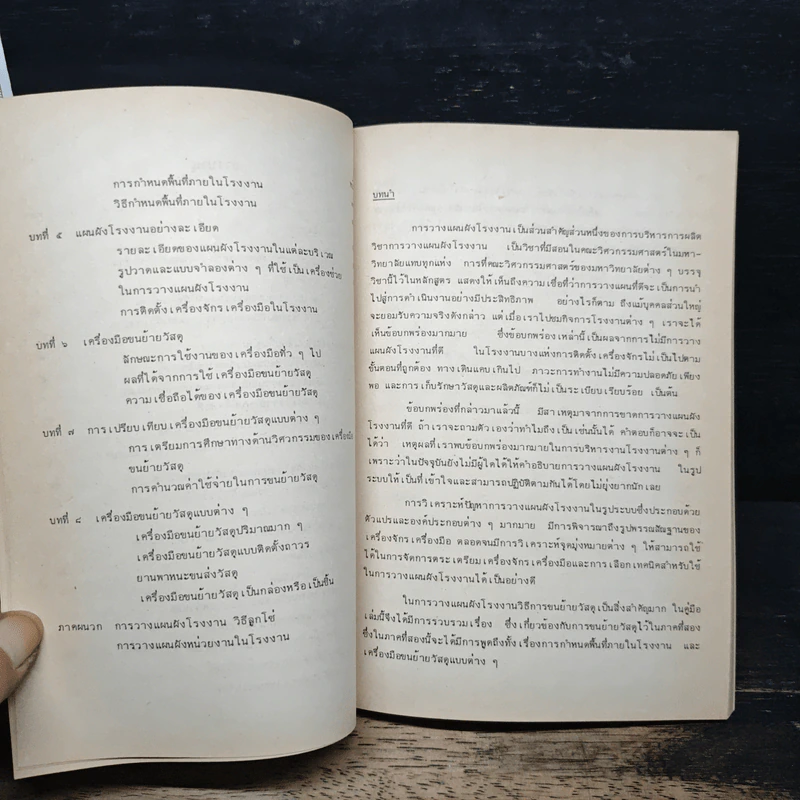 การกำหนดพื้นที่ภายในโรงงาน
วิธีกำหนดพื้นที่ภายในโรงงาน
บทที่ ๕ แผนผังโรงงานอย่างละเอียด
รายละเอียดของแผนผังโรงงานในแต่ละบริเวณ
รูปวาดและแบบจำลองต่าง ๆ ที่ใช้เป็นเครื่องช่วย
ในการวางแผนผังโรงงาน
การติดตั้งเครื่องจักร เครื่องมือในโรงงาน
บทที่ ๖ เครื่องมือขนย้ายวัสดุ
ลักษณะการใช้งานของเครื่องมือทั่ว ๆ ไป
ผลที่ได้จากการใช้เครื่องมือขนย้ายวัสดุ
ความเชื่อถือได้ของเครื่องมือขนย้ายวัสดุ
บทที่ ๗ การเปรียบเทียบเครื่องมือขนย้ายวัสดุแบบต่าง ๆ
การเตรียมการศึกษาทางด้านวิศวกรรมของเครื่องมือ
ขนย้ายวัสดุ
การคำนวณค่าใช้จ่ายในการขนย้ายวัสดุ
บทที่ ๘ เครื่องมือขนย้ายวัสดุแบบต่าง ๆ
เครื่องมือขนย้ายวัสดุปริมาณมาก ๆ
เครื่องมือขนย้ายวัสดุแบบติดตั้งถาวร
ยานพาหนะขนส่งวัสดุ
เครื่องมือขนย้ายวัสดุเป็นกล่องหรือเป็นชิ้น
ภาคผนวก การวางแผนผังโรงงาน วิธีลูกโซ่
การวางแผนผังหน่วยงานในโรงงาน
บทนำ
การวางแผนผังโรงงานเป็นส่วนสำคัญส่วนหนึ่งของการบริหารการผลิต
วิชาการวางแผนผังโรงงาน เป็นวิชาที่มีสอนในคณะวิศวกรรมศาสตร์ในมหา-
วิทยาลัยแทบทุกแห่ง การที่คณะวิศวกรรมศาสตร์ของมหาวิทยาลัยต่าง ๆ บรรจุ
วิชานี้ไว้ในหลักสูตร แสดงให้เห็นถึงความเชื่อที่ว่าการวางแผนที่ดีจะเป็นการนำ
ไปสู่การดำเนินงานอย่างมีประสิทธิภาพ อย่างไรก็ตาม ถึงแม้บุคคลส่วนใหญ่
จะยอมรับความจริงดังกล่าว แต่เมื่อเราไปชมกิจการโรงงานต่าง ๆ เราจะได้
เห็นข้อบกพร่องมากมาย ซึ่งข้อบกพร่องเหล่านี้เป็นผลจากการไม่มีการวาง
แผนผังโรงงานที่ดี ในโรงงานบางแห่งการติดตั้งเครื่องจักรไม่เป็นไปตาม
ขั้นตอนที่ถูกต้อง ทางเดินแคบเกินไป ภาวะการทำงานไม่มีความปลอดภัยเพียง
พอ และการเก็บรักษาวัสดุและผลิตภัณฑ์ก็ไม่เป็นระเบียบเรียบร้อย เป็นต้น
ข้อบกพร่องที่กล่าวมาแล้วนี้ มีสาเหตุมาจากการขาดการวางแผนผัง
โรงงานที่ดี ถ้าเราจะถามตัวเองว่าทำไมถึงเป็นเช่นนั้นได้ คำตอบก็อาจจะเป็น
ได้ว่า เหตุผลที่เราพบข้อบกพร่องมากมายในการบริหารงานโรงงานต่าง ๆ ก็
เพราะว่าในปัจจุบันยังไม่มีผู้ใดได้ให้คำอธิบายการวางแผนผังโรงงาน ในรูป
ระบบให้เป็นที่เข้าใจและสามารถปฏิบัติตามกันได้โดยไม่ยุ่งยากนักเลย
การวิเคราะห์ปัญหาการวางแผนผังโรงงานในรูประบบซึ่งประกอบด้วย
ตัวแปรและองค์ประกอบต่าง ๆ มากมาย มีการพิจารณาถึงรูปพรรณสัณฐานของ
เครื่องจักรเครื่องมือ ตลอดจนมีการวิเคราะห์จุดมุ่งหมายต่าง ๆ ให้สามารถใช้
ได้ในการจัดการตระเตรียมเครื่องจักรเครื่องมือและการเลือกเทคนิคสำหรับใช้
ในการวางแผนผังโรงงานได้เป็นอย่างดี
ในการวางแผนผังโรงงานวิธีการขนย้ายวัสดุเป็นสิ่งสำคัญมาก ในคู่มือ
เล่มนี้จึงได้มีการรวบรวมเรื่อง ซึ่งเกี่ยวข้องกับการขนย้ายวัสดุไว้ในภาคที่สอง
ซึ่งในภาคที่สองนี้จะได้มีการพูดถึงทั้งเรื่องการกำหนดพื้นที่ภายในโรงงาน และ
เครื่องมือขนย้ายวัสดุแบบต่าง ๆ